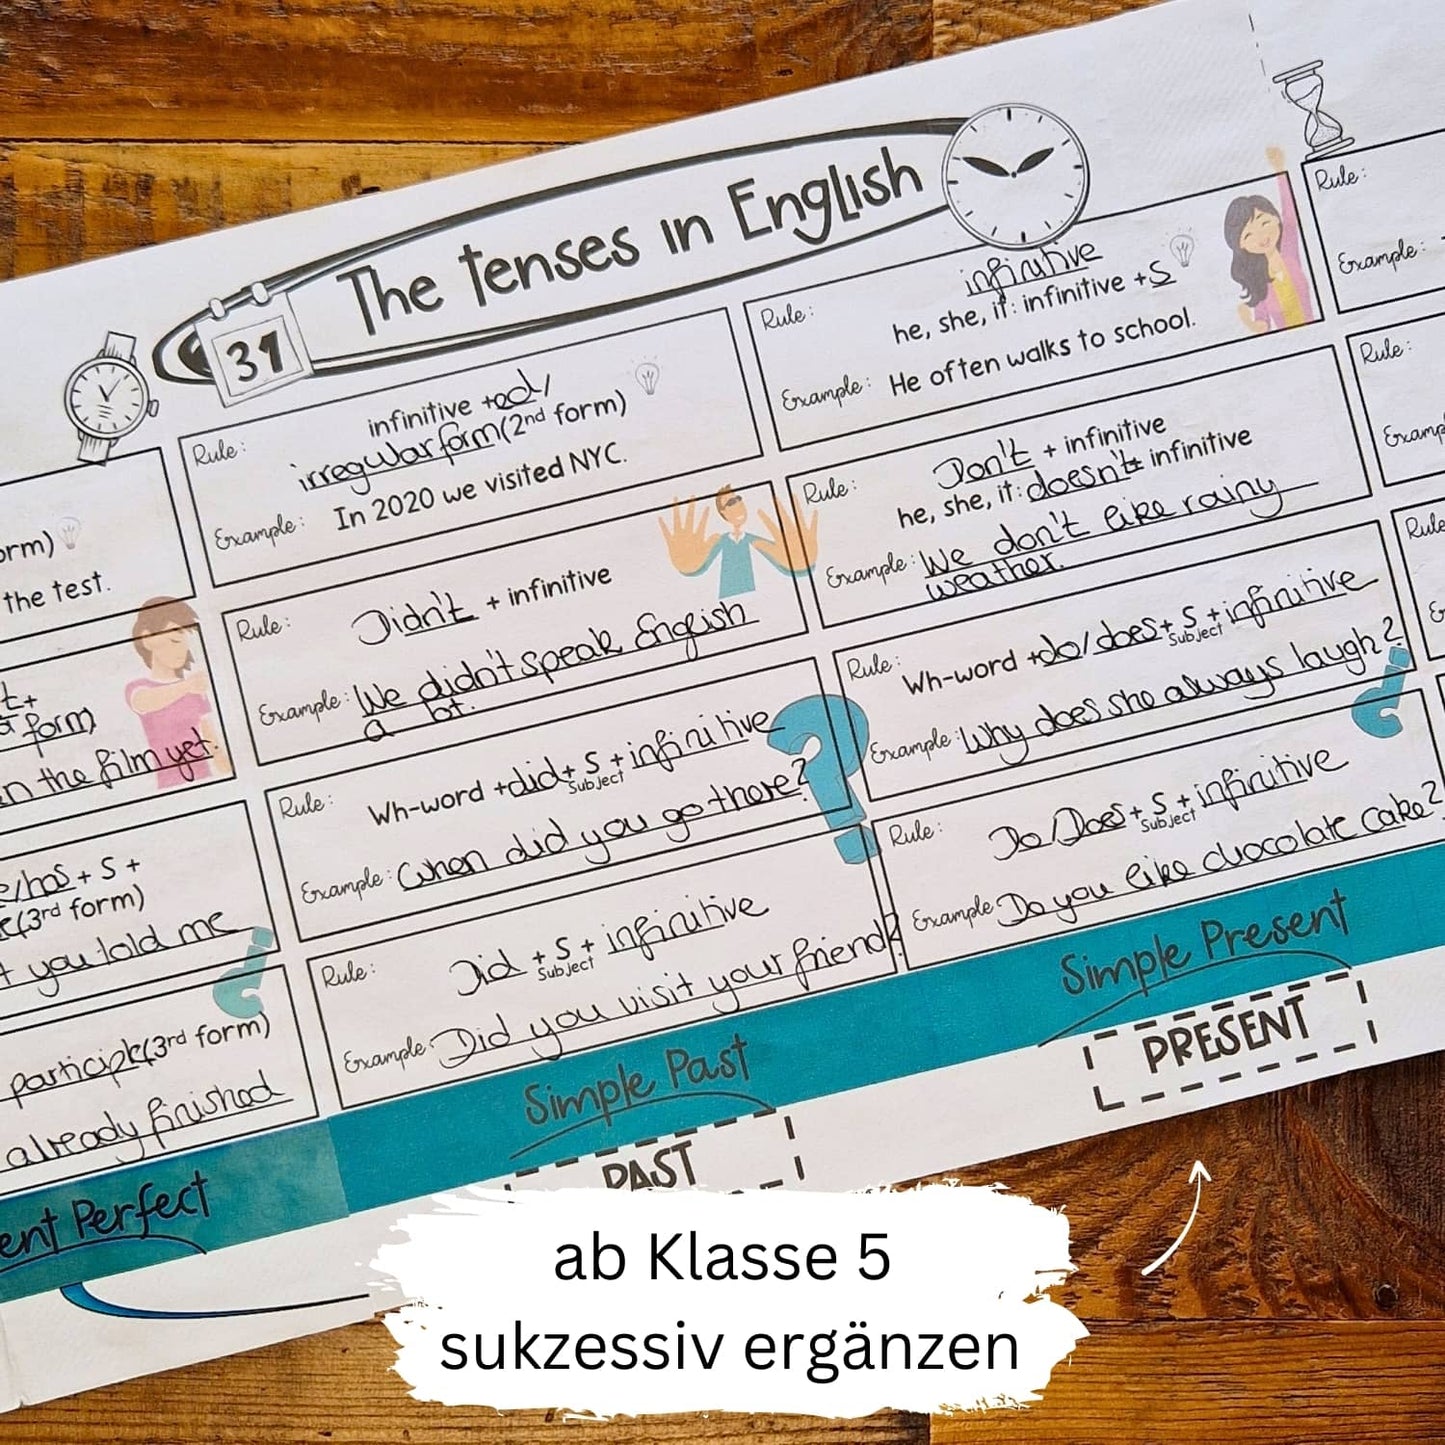 The tenses in English
31
orm)
the test.
t+
form)
n the film yet.
e/has + S +
(3rd form)
t you told me
participle(3rd form)
already finished
ent Perfect
Rule:
infinitive +ed/
irregular form(2nd form)
Example: In 2020 we visited NYC.
Rule: Didn't + infinitive
Example: We didn't speak English
a lot.
Rule: Wh-word +did+ S + infinitive
Subject
Example: When did you go there?
Rule: Did + S + infinitive
Subject
Example: Did you visit your friend?
Simple Past
PAST
Rule: infinitive
he, she, it: infinitive +S
Example: He often walks to school.
Rule: Don't + infinitive
he, she, it: doesn't+ infinitive
Example: We don't like rainy
weather.
Rule: Wh-word +do/does+ S +infinitive
Subject
Example: Why does she always laugh?
Rule: Do/Does+ S + infinitive
Subject
Example: Do you like chocolate cake?
Simple Present
PRESENT
Rule:
Example:
Rule:
Examp
Rule
ab Klasse 5
sukzessiv ergänzen